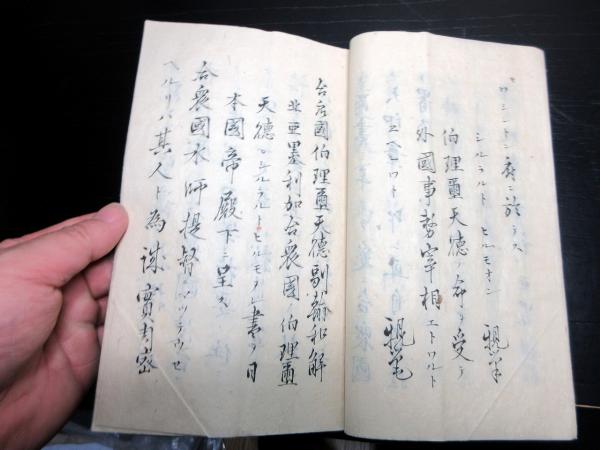 ワシントン府ニ於テス
シルラルト ヒルモオン 親筆
伯理璽天徳ノ命ヲ受テ
外國事務宰相エトワルト
エヘレット 親筆
合衆國伯理璽天徳副翰和解
北亜墨利加合衆國伯理璽
天徳ミルラルトヒルモオレ書ヲ日
本國帝殿下ニ呈ス
合衆國水師提督マツテウセ
ヘルリハ其人ト為誠實周密